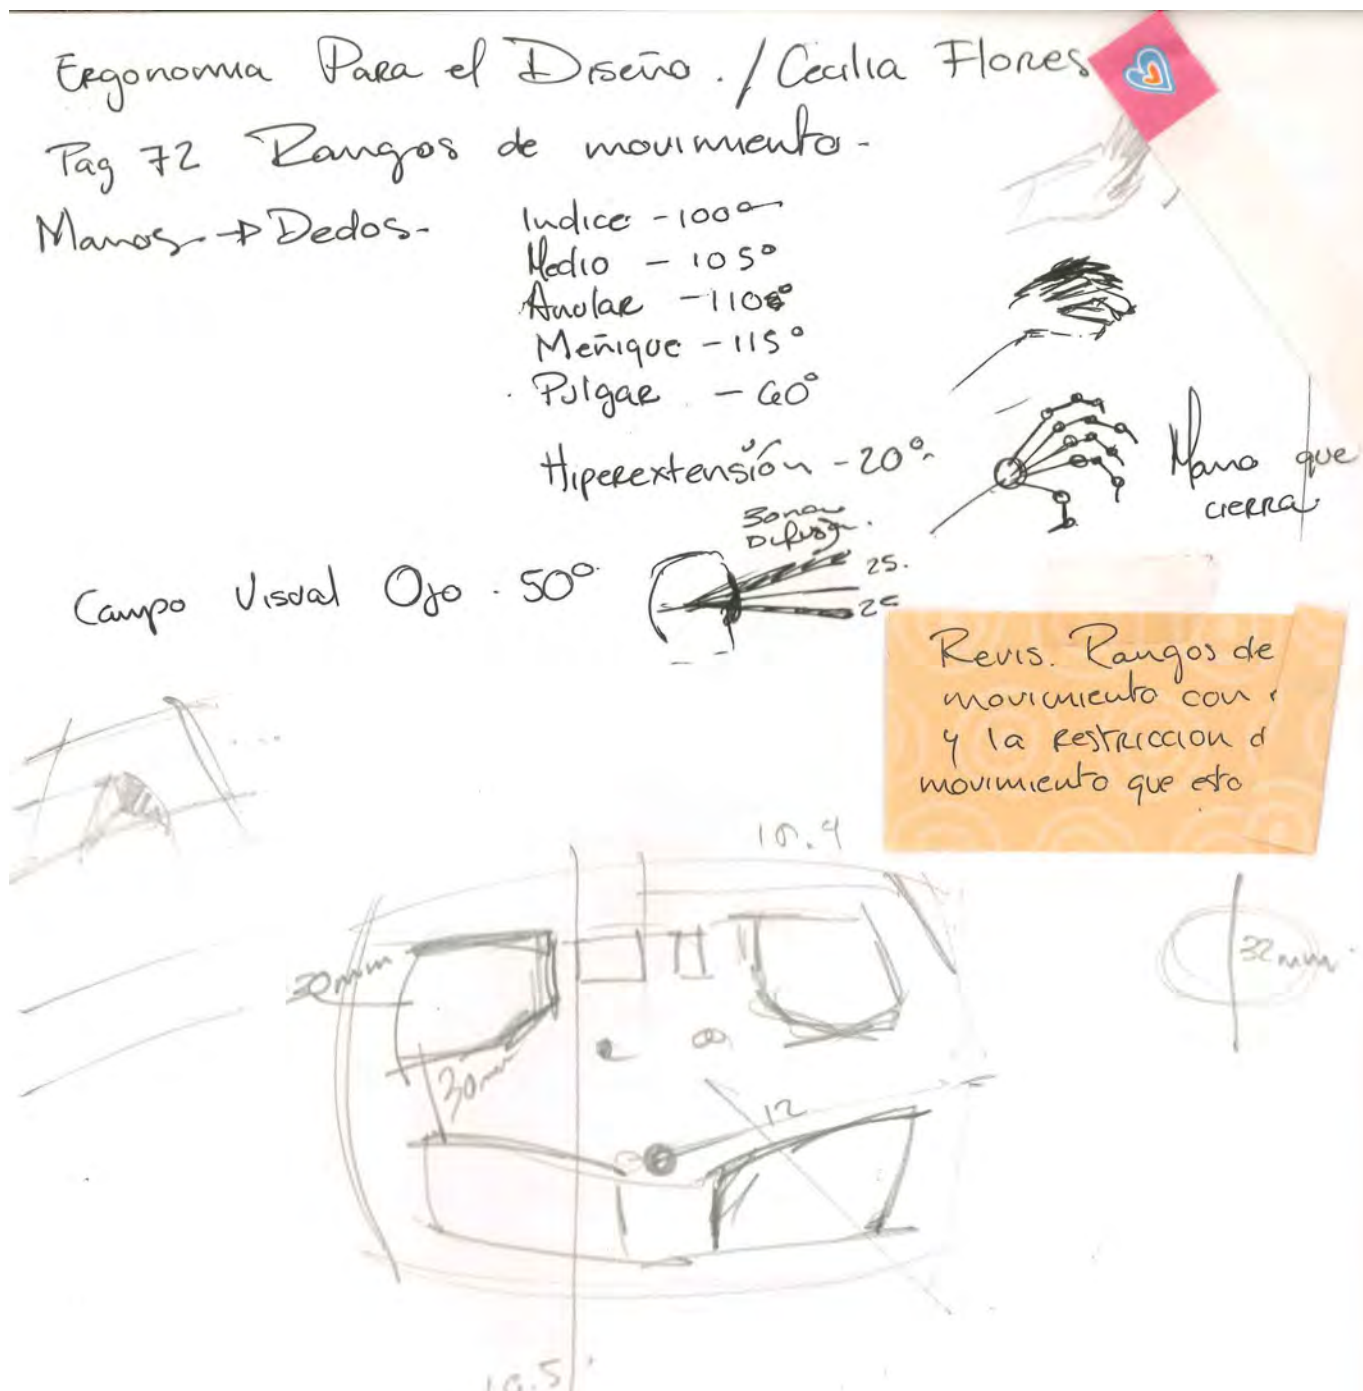 Ergonomia Para el Diseño. / Cecilia Flores
Pag 72 Rangos de movimiento-
Manos → Dedos-
Indice - 100°
Medio - 105°
Anular - 110°
Meñique - 115°
Pulgar - 60°
Hiperextensión - 20°
Mano que
cierra
Campo Visual Ojo. 50°
Zona
Difusa.
25.
25
Revis. Rangos de
movimiento con
y la restriccion d
movimiento que esto
30mm
30mm
12
32mm